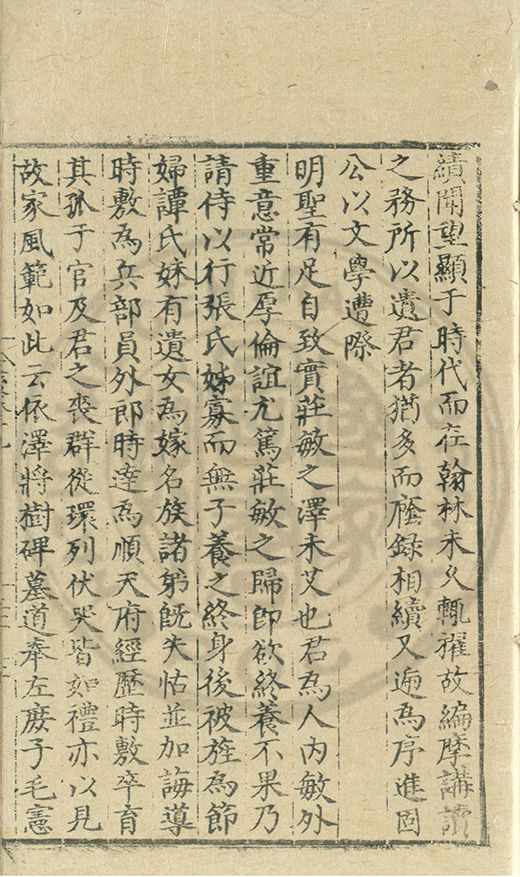 績聞望顯于時代而在翰林未久輒擢故編摩講讀
之務所以遺君者猶多而廕錄相續又遍為序進固
公以文學遭際
明聖有足自致實莊敏之澤未艾也君為人內敏外
重意常近厚倫誼尤篤莊敏之歸即欲終養不果乃
請侍以行張氏姊寡而無子養之終身後被旌為節
婦譚氏妹有遺女為嫁名族諸弟既失怙並加誨導
時敷為兵部員外郎時達為順天府經歷時敷卒育
其孤于官及君之喪群從環列伏哭皆如禮亦以見
故家風範如此云依澤將樹碑墓道奉左庶子毛憲